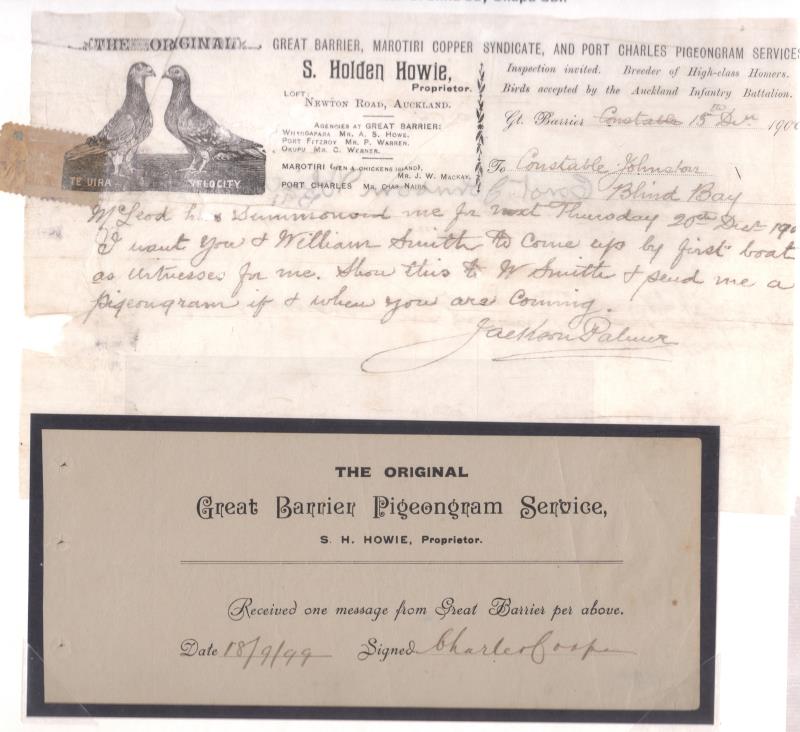 THE ORIGINAL GREAT BARRIER, MAROTIRI COPPER SYNDICATE, AND PORT CHARLES PIGEONGRAM SERVICES
S. Holden Howie,
Proprietor.
LOFT,
NEWTON ROAD, AUCKLAND.
AGENCIES AT GREAT BARRIER:
WHANGAPARA MR. A. S. HOWE.
PORT FITZROY MR. P. WARREN.
OKUPU MR. C. WERNER.
MAROTIRI (HEN & CHICKENS ISLAND)
MR. J. W. MACKAY.
PORT CHARLES MR. CHAS NAIRN
TE UIRA VELOCITY
Inspection invited. Breeder of High-class Homers.
Birds accepted by the Auckland Infantry Battalion.
Gt. Barrier Constable 15th Decr 1900
To Constable Johnston
Blind Bay
McLeod has Summonsed me for next Thursday 20th Dect 190
I want You & William Smith to come up by first boat
as witnesses for me. Show this to W Smith & send me a
pigeongram if & when you are coming.
Jackson Palmer
THE ORIGINAL
Great Barrier Pigeongram Service,
S. H. HOWIE, Proprietor.
Received one message from Great Barrier per above.
Date 18/9/99 Signed Charles Coope